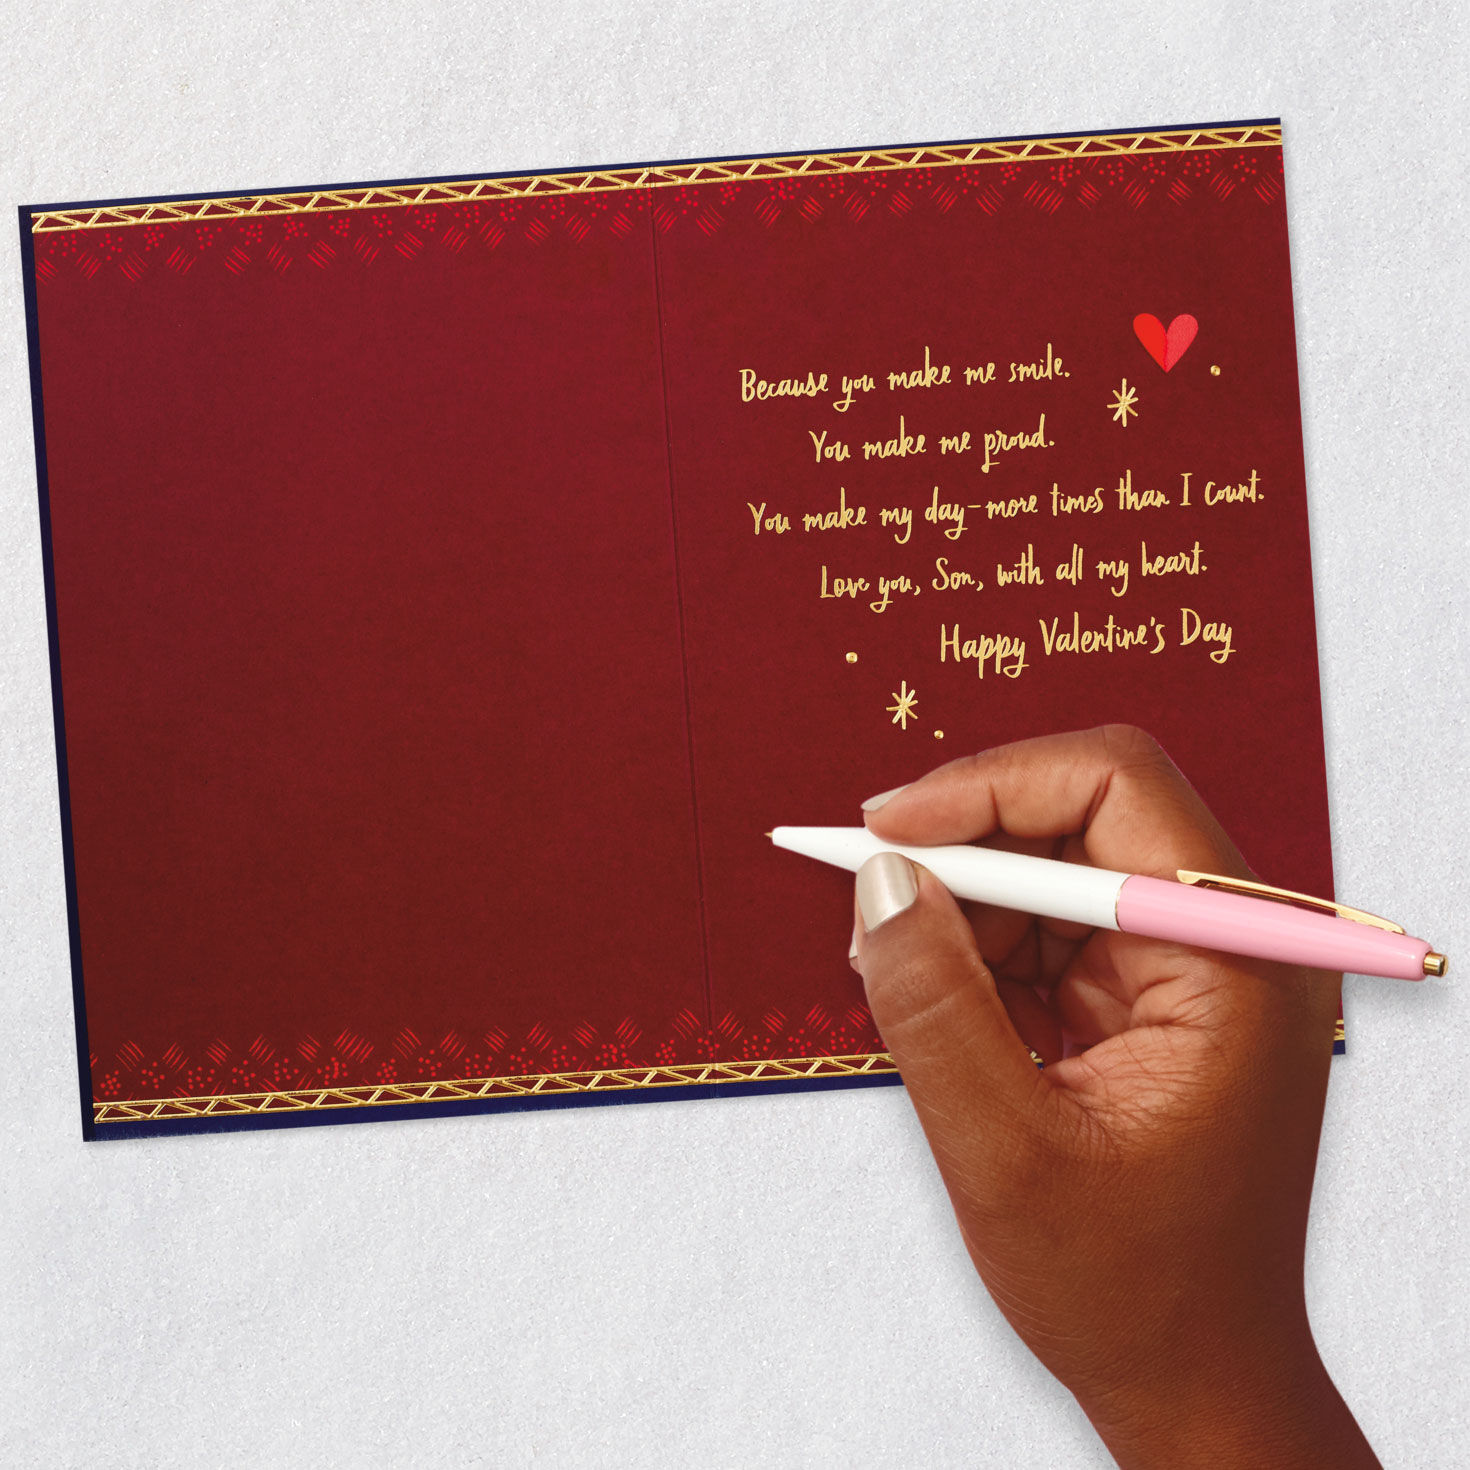 Because you make me smile.
You make me proud.
You make my day–more times than I count.
Love you, Son, with all my heart.
Happy Valentine's Day